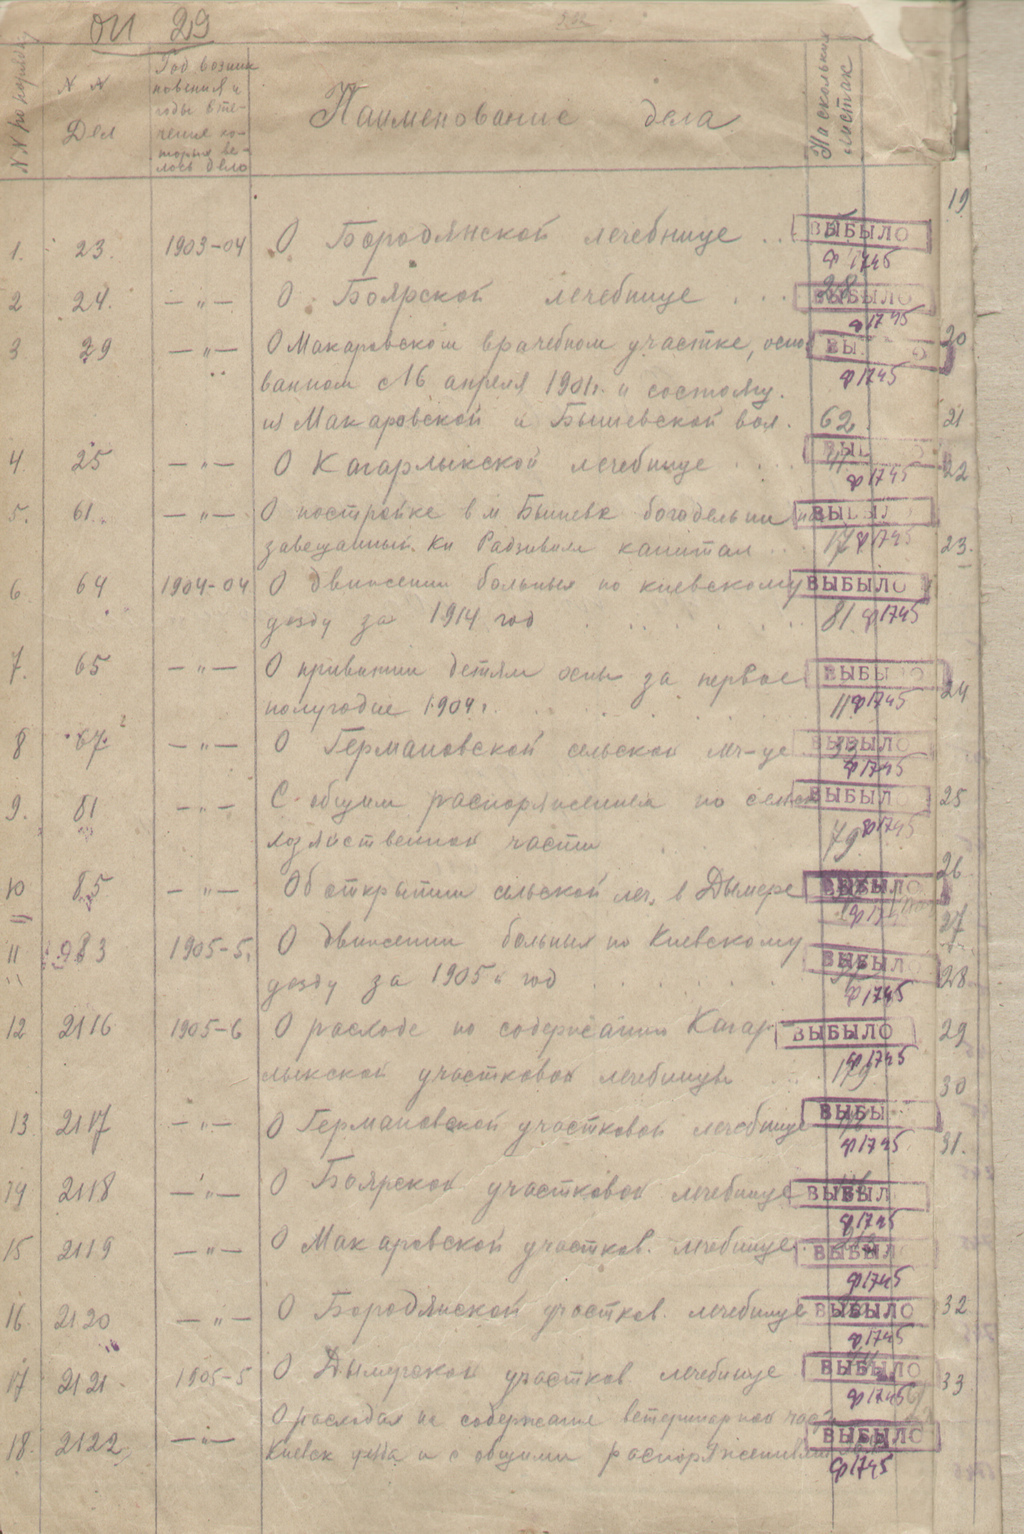 оп 29
NN по порядку
N N Дел
Год возник
новения и
годы в те-
чении ко-
торых ве-
лось дело
Наименование дела
На скольких листах
19
1. 23. 1903-04 О Бородянской лечебнице .. ВЫБЫЛО
ф1745
2 24. — „ — О Боярской лечебнице . . . 28 ВЫБЫЛО
ф1745
3 29 — „ — О Макаровском врачебном участке, осно ВЫ О
20
ванном с 16 апреля 1901г. и состоящ. ф1745
из Макаровской и Бышевской вол. 62
21
4. 25 — „ — О Кагарлыкской лечебнице . . . ВЫ
22
ф1745
5. 61. — „ — О постройке в м Бышеве богодельни на ВЫБЫЛ
завещанный Кн Радзивилл капитал ... 17 ф1745
23.
6. 64 1904-04 О движении больных по киевскому ВЫБЫЛО
уезду за 1914 год . . . . . . 81 ф1745
7. 65 — „ — О привитии детям оспы за первое ВЫБЫЛО
24
полугодие 1904г. . . . . 11 ф1745
8 67. — „ — О Германовской сельской леч-це 33 ВЫБЫЛО
ф1745
9. 81 — „ — С общим распоряжением по сельско ВЫБЫЛО
25
хозяйственной части 79 ф1745
26
10 85 — „ — Об открытии сельской леч. в Дымере ВЫБЫЛО
27
11 983 1905-5. О движении больных по Киевскому
уезду за 1905й год . . . . . ВЫБЫЛО
28
ф1745
12 2116 1905-6 О расходе по содержанию Кагар- ВЫБЫЛО
29
лыкской участковой лечебницы ... 179 ф1745
30
13 2117 — „ — О Германовской участковой лечебнице ВЫБЫ
ф1745
31.
14 2118 — „ — О Боярской участковой лечебнице ВЫБЫЛ
ф1745
15 2119 — „ — О Макаровской участков. лечебнице ВЫБЫЛ
ф1745
16. 2120 — „ — О Бородянской участков. лечебнице ВЫБЫЛО
32
ф1745
17 2121. 1905-5 О Дымерской участков лечебнице ВЫБЫЛО
33
ф1745
О расходах на содержание ветеринарной част
18. 2122 — „ — Киевск уезда и с общими распоряжениями ВЫБЫЛО
ф1745